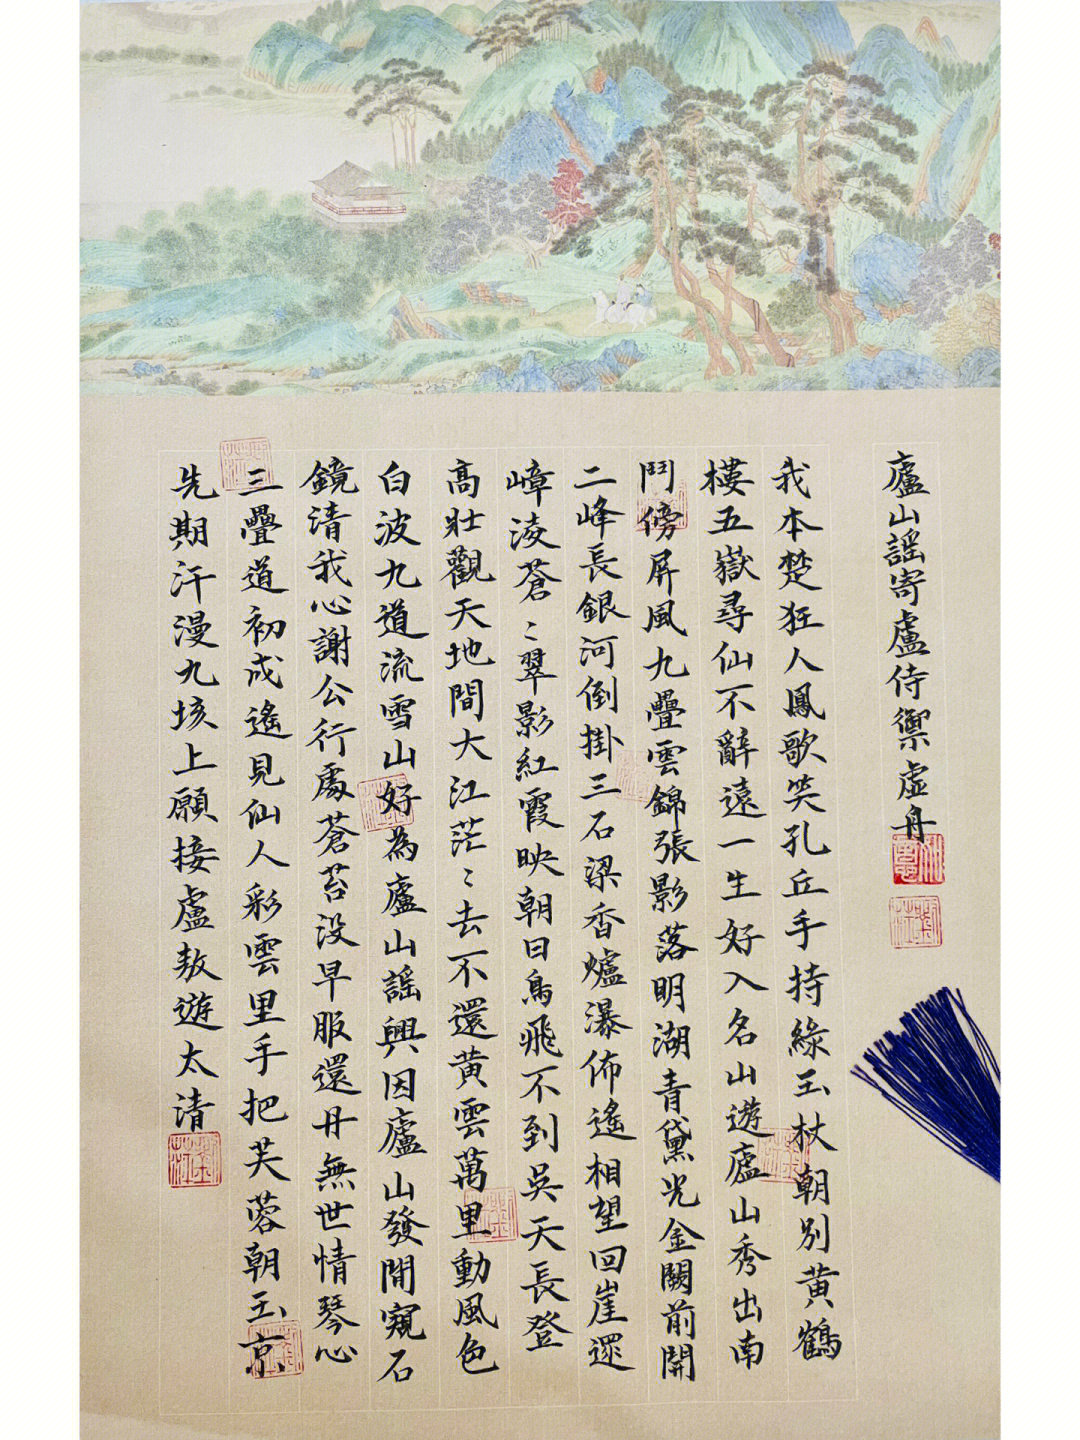 廬山謠寄盧侍禦虛舟
我本楚狂人鳳歌笑孔丘手持綠玉杖朝別黃鶴
樓五嶽尋仙不辭遠一生好入名山遊廬山秀出南
鬥傍屏風九疊雲錦張影落明湖青黛光金闕前開
二峰長銀河倒掛三石梁香爐瀑佈遙相望回崖遝
嶂淩蒼〻翠影紅霞映朝日鳥飛不到吳天長登
高壯觀天地間大江茫〻去不還黃雲萬里動風色
白波九道流雪山好為廬山謠興因廬山發閒窺石
鏡清我心謝公行處蒼苔沒早服還丹無世情琴心
三疊道初成遙見仙人彩雲里手把芙蓉朝玉京
先期汗漫九垓上願接盧敖遊太清